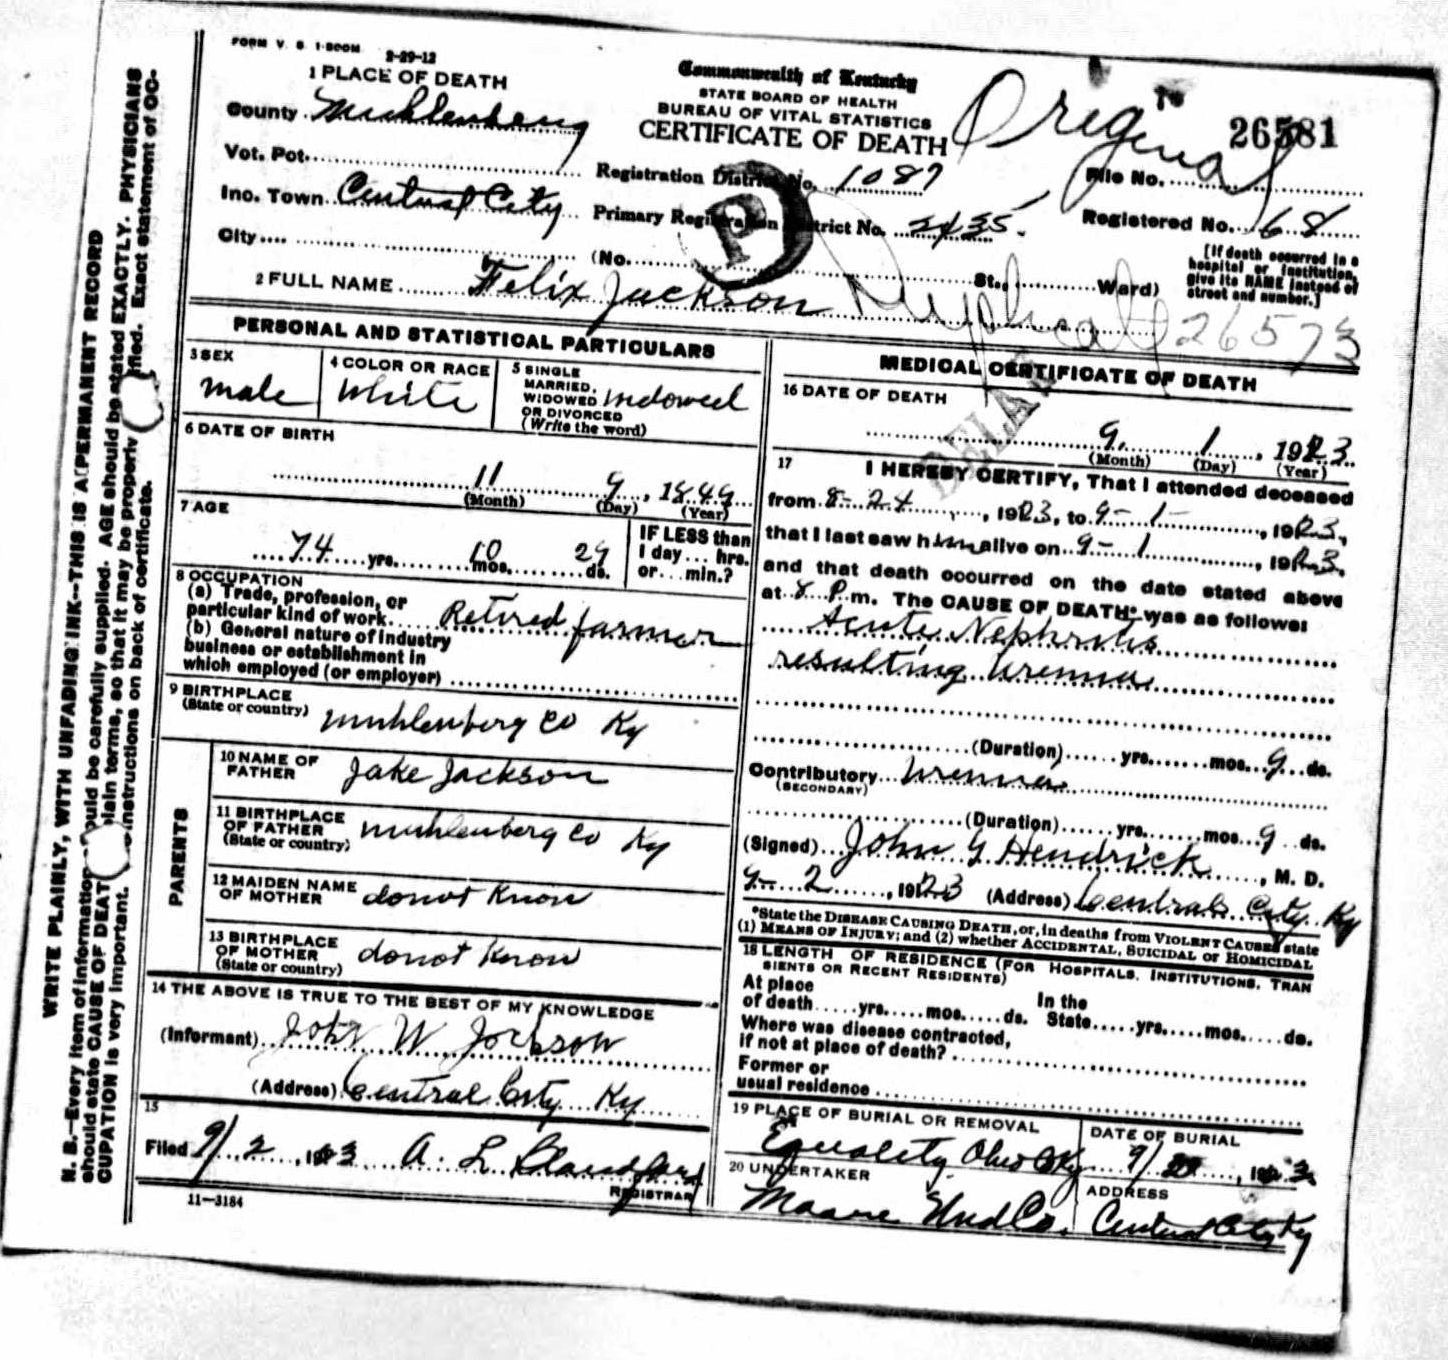 FORM V. S. 1-500M 2-29-12
1 PLACE OF DEATH
County Muhlenberg
Vot. Pct.
Inc. Town Central City
City
Commonwealth of Kentucky
STATE BOARD OF HEALTH
BUREAU OF VITAL STATISTICS
CERTIFICATE OF DEATH
Original
26581
Registration District No. 1087
File No.
Primary Registration District No. 2435
Registered No. 68
P
(No. St., Ward)
[If death occurred in a hospital or institution, give its NAME instead of street and number.]
2 FULL NAME Felix Jackson
Duplicate 26573
PERSONAL AND STATISTICAL PARTICULARS
3 SEX
male
4 COLOR OR RACE
White
5 SINGLE
MARRIED,
WIDOWED
OR DIVORCED
(Write the word)
widowed
6 DATE OF BIRTH
11 9, 1849
(Month) (Day) (Year)
7 AGE
74 yrs. 10 mos. 29 ds.
IF LESS than
1 day... hrs.
or... min.?
8 OCCUPATION
(a) Trade, profession, or
particular kind of work Retired farmer
(b) General nature of industry
business or establishment in
which employed (or employer)
9 BIRTHPLACE
(State or country) Muhlenberg Co Ky
PARENTS
10 NAME OF
FATHER Jake Jackson
11 BIRTHPLACE
OF FATHER
(State or country) Muhlenberg Co Ky
12 MAIDEN NAME
OF MOTHER do not Know
13 BIRTHPLACE
OF MOTHER
(State or country) do not Know
14 THE ABOVE IS TRUE TO THE BEST OF MY KNOWLEDGE
(Informant) John W Jackson
(Address) Central City Ky
15
Filed 9/2, 1923 A. L. Blandford
REGISTRAR
11—3184
MEDICAL CERTIFICATE OF DEATH
16 DATE OF DEATH
9 1, 1923
(Month) (Day) (Year)
17 I HEREBY CERTIFY, That I attended deceased
from 8-24, 1923, to 9-1-, 1923,
that I last saw him alive on 9-1, 1923,
and that death occurred on the date stated above
at 8 P. m. The CAUSE OF DEATH* was as follows:
Acute Nephritis
resulting Uremia
(Duration) yrs. mos. 9 ds.
Contributory Uremia
(SECONDARY)
(Duration) yrs. mos. 9 ds.
(Signed) John G Hendrick, M. D.
9-2, 1923 (Address) Central City Ky
*State the DISEASE CAUSING DEATH, or, in deaths from VIOLENT CAUSES state
(1) MEANS OF INJURY; and (2) whether ACCIDENTAL, SUICIDAL or HOMICIDAL
18 LENGTH OF RESIDENCE (FOR HOSPITALS, INSTITUTIONS, TRAN
SIENTS OR RECENT RESIDENTS)
At place
of death yrs. mos. ds.
In the
State yrs. mos. ds.
Where was disease contracted,
if not at place of death?
Former or
usual residence
19 PLACE OF BURIAL OR REMOVAL
Equality Ohio Co Ky
DATE OF BURIAL
9/2, 1923
20 UNDERTAKER
Moore Und Co.
ADDRESS
Central City Ky
WRITE PLAINLY, WITH UNFADING INK--THIS IS A PERMANENT RECORD
N. B.—Every item of information should be carefully supplied. AGE should be stated EXACTLY. PHYSICIANS
should state CAUSE OF DEATH plain terms, so that it may be properly fied. Exact statement of OC-
CUPATION is very important. instructions on back of certificate.